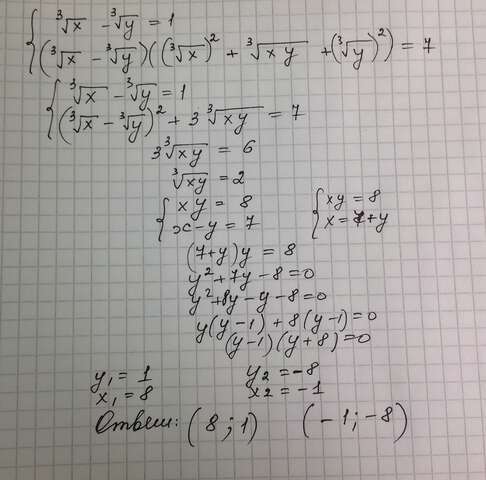 { ∛x - ∛y = 1
(∛x - ∛y)((∛x)² + ∛xy + (∛y)²) = 7
{ ∛x - ∛y = 1
(∛x - ∛y)² + 3∛xy = 7
3∛xy = 6
∛xy = 2
{ xy = 8 { xy = 8
x-y = 7 x = 7+y
(7+y)y = 8
y² + 7y - 8 = 0
y² + 8y - y - 8 = 0
y(y-1) + 8(y-1) = 0
(y-1)(y+8) = 0
y₁ = 1 y₂ = -8
x₁ = 8 x₂ = -1
Ответ: (8;1) (-1;-8)